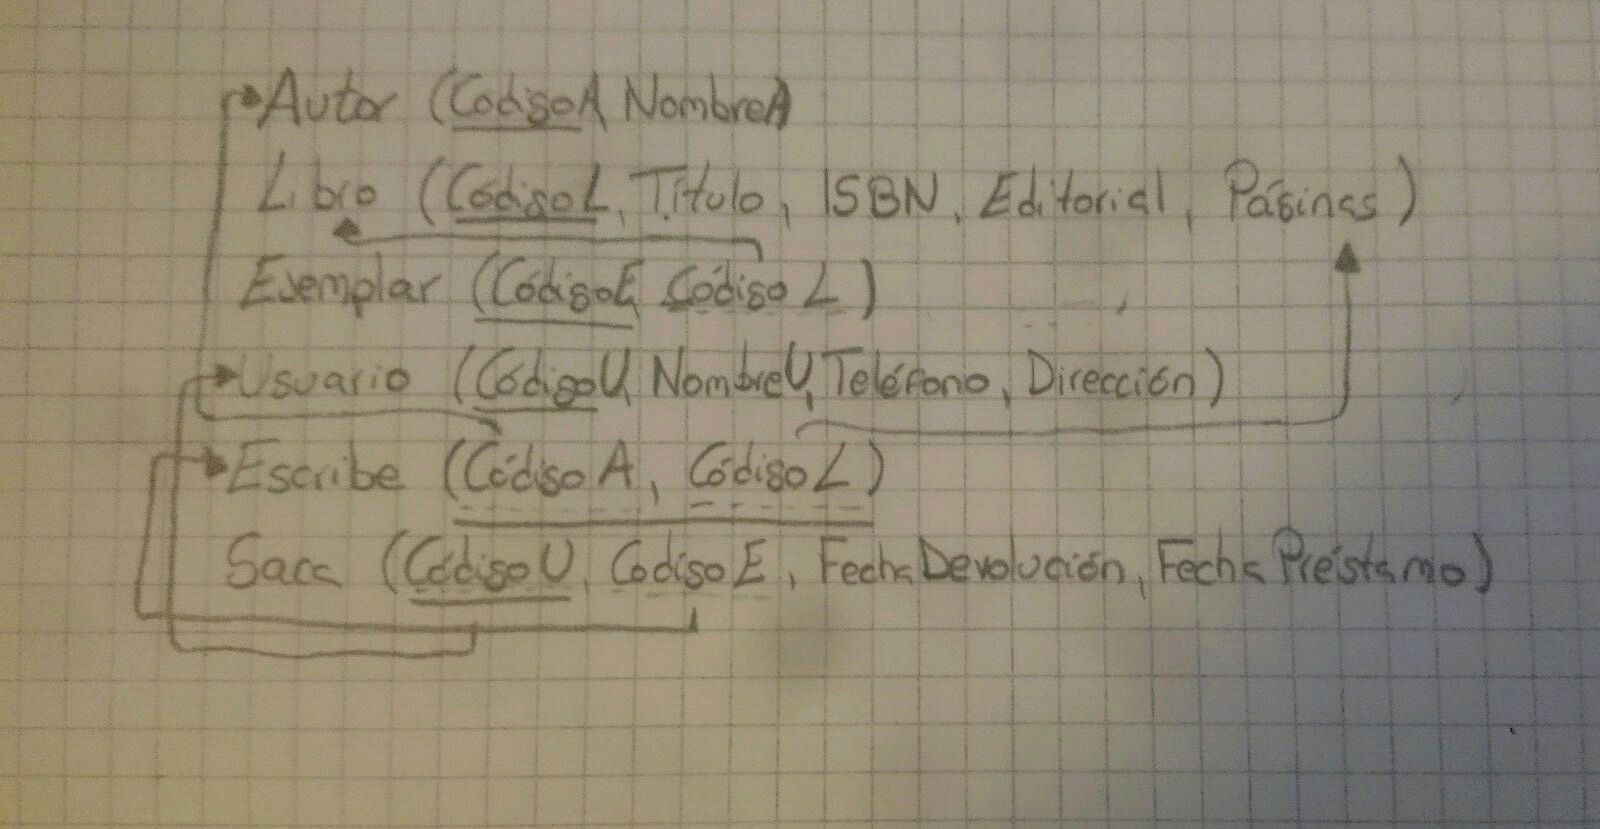 Autor (CodigoA, NombreA)
Libro (CódigoL, Título, ISBN, Editorial, Páginas)
Ejemplar (CódigoE, Código L)
Usuario (CódigoU, NombreU, Teléfono, Dirección)
Escribe (Código A, Código L)
Saca (Código U, Codigo E, Fecha Devolución, Fecha Préstamo)